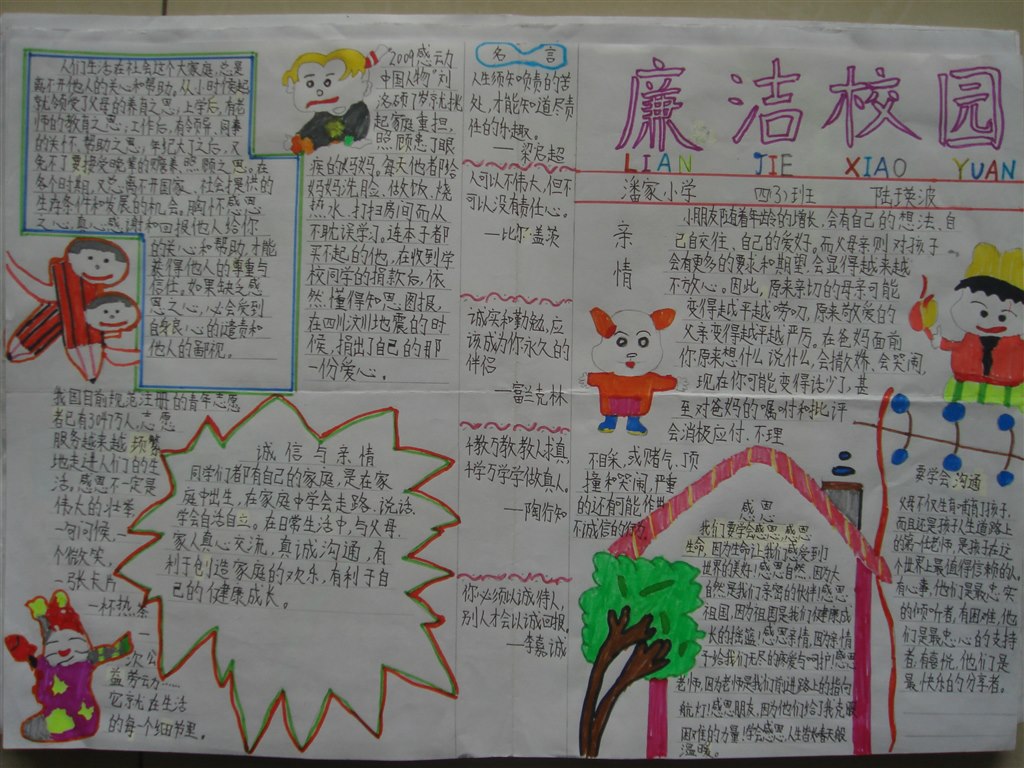 廉洁校园
LIAN JIE XIAO YUAN
潘家小学 四(3)班 陆瑛波
人们生活在社会这个大家庭,总是
离不开他人的关心和帮助。从小时候起
就领受了父母的养育之恩,上学后,有老
师的教育之恩,工作后,有领导、同事
的关怀、帮助之恩,年纪大了之后,又
免不了要接受晚辈的赡养、照顾之恩。在
各个时期,又总离不开国家、社会提供的
生存条件和发展的机会。胸怀感恩
之心,真心感谢和回报他人给你
的关心和帮助,才能
获得他人的尊重与
信任。如果缺乏感
恩之心,必会受到
自身良心的谴责和
他人的鄙视。
2009感动
中国人物"刘
洛硕了岁就挑
起家庭重担,
照顾患了眼
疾的妈妈。每天他都给
妈妈洗脸、做饭、烧
热水、打扫房间而从
不耽误学习。连本子都
买不起的他,在收到学
校同学的捐款后,依
然懂得知恩图报,
在四川汶川地震的时
候,捐出了自己的那
一份爱心。
名言
人生须知负责的苦
处,才能知道尽责
任的乐趣。
——梁启超
人可以不伟大,但不
可以没有责任心。
—比尔·盖茨
诚实和勤勉,应
该成为你永久的
伴侣
—富兰克林
千教万教教人求真,
千学万学学做真人。
—陶行知
你必须以诚待人,
别人才会以诚回报。
—李嘉诚
亲情
小朋友随着年龄的增长,会有自己的想法,自
己自交往,自己的爱好。而父母亲则对孩子
会有更多的要求和期望,会显得越来越
不放心。因此,原来亲切的母亲可能
变得越来越唠叨,原来敬爱的
父亲变得越来越严厉。在爸妈面前
你原来想什么说什么,会撒娇、会哭闹,
现在你可能变得话少了,甚
至对爸妈的嘱咐和批评
会消极应付、不理
不自采,或赌气,顶
撞和哭闹,严重
的还有可能作出
不诚信的行为。
我国目前规范注册的青年志愿
者已有3047万人,志愿
服务越来越频繁
地走进人们的生
活,感恩不一定是
伟大的壮举
一句问候,一
个微笑,
一张卡片
一杯热茶
一
次公
益劳动……
它就在生活
的每个细节里。
诚信与亲情
同学们都有自己的家庭,是在家
庭中出生,在家庭中学会走路,说话,
学会自活自立。在日常生活中,与父母,
家人真心交流,真诚沟通,有
利于创造家庭的欢乐,有利于自
己的健康成长。
感恩
我们要学会感恩,感恩
生命,因为生命让我们感受到了
世界的美好!感恩自然,因为大
自然是我们亲密的伙伴!感恩
祖国,因为祖国是我们健康成
长的摇篮!感恩亲情,因为亲情
予给我们无尽的疼爱与呵护!感恩
老师,因为老师是我们前进路上的指向
航灯!感恩朋友,因为他们给了我克服
困难的力量!学会感恩,人生皆如春天般
温暖。
要学会沟通
父母不仅生育哺育了孩子,
而且还是孩子人生道路上
的第一位老师,是孩子在这
个世界上最值得信赖的人。
有心事,他们是最忠实
的倾听者,有困难,他
们是最忠心的支持
者,有喜悦,他们是
最快乐的分享者。